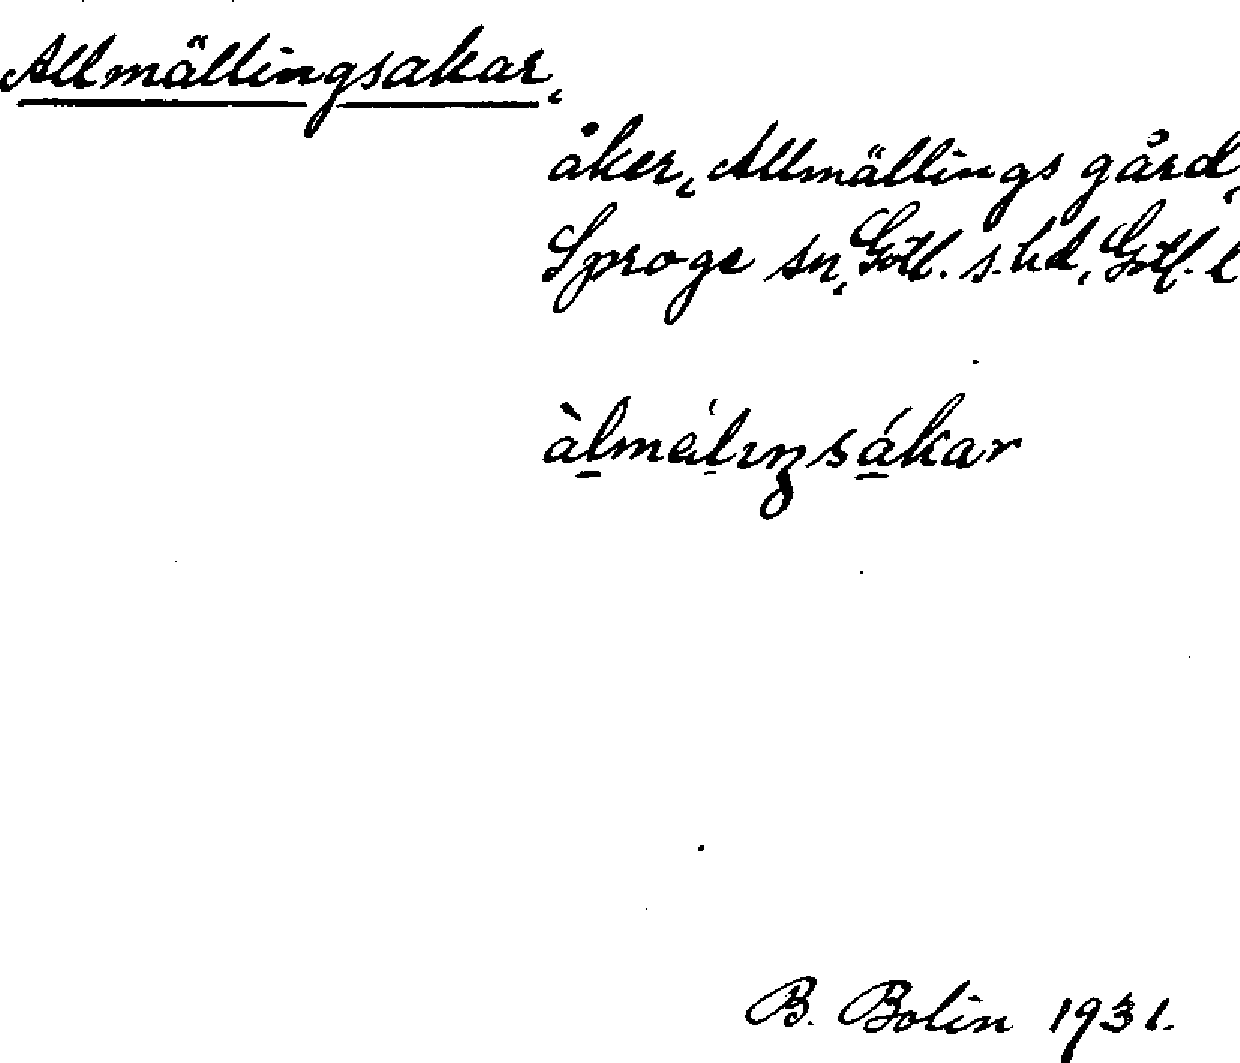 Allmällingsakar,
åker, Allmällings gård,
Sproge sn, Gotl. s. hd, Gotl. l
àlmälıŋsákar
B. Bolin 1931.